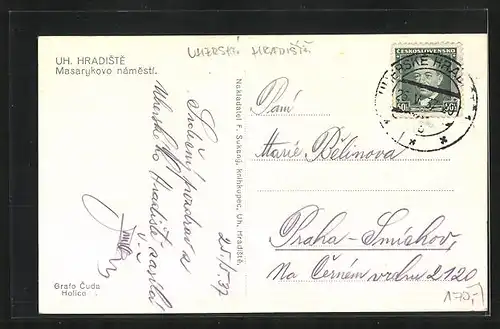 UH. HRADIŠTĚ
Masarykovo náměstí.
UHERSKÉ HRADIŠTĚ
ČESKOSLOVENSKO
50h
50h
UHERSKÉ HRAD
Srdečný pozdrav z
Uherského Hradiště zasílá
25./5. 37
Nakladatel F. Sukeng, knihkupec, Uh. Hradiště.
Paní
Marie Bělinova
Praha-Smíchov
Na Černém vrchu 2120
170,-
Grafo Čuda
Holice